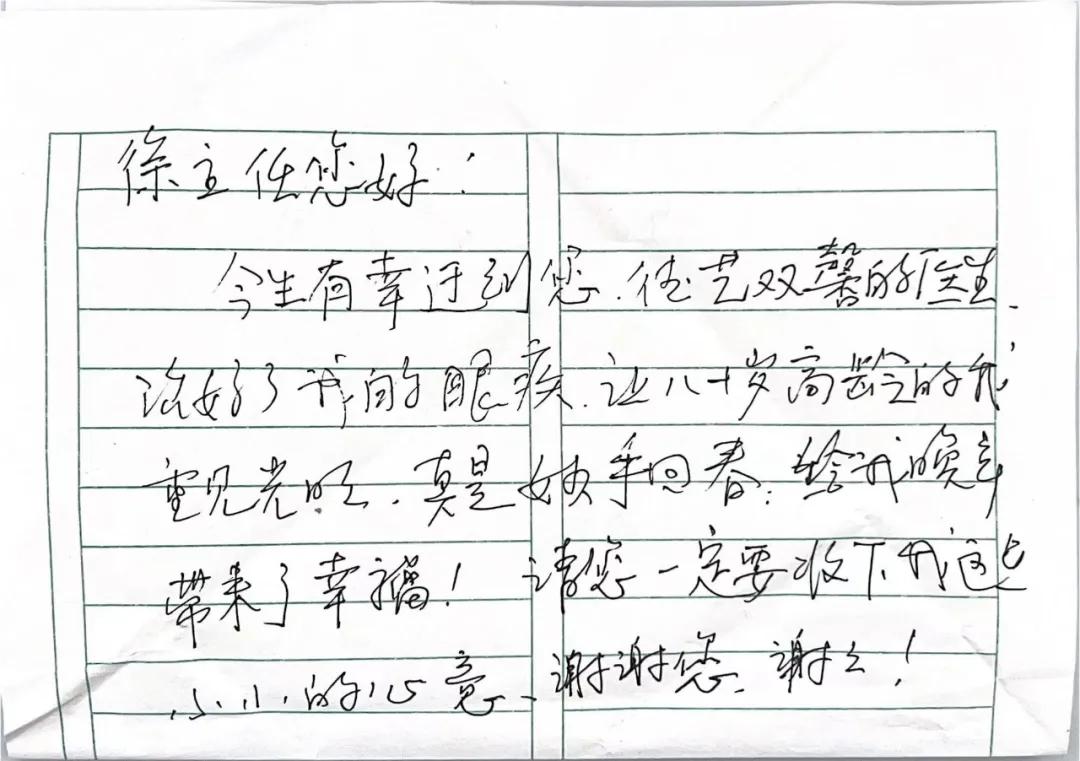 徐主任您好：
今生有幸迂到您.德艺双馨的医生.
治好了我的眼疾.让八十岁高龄的我
重见光明.真是妙手回春；给我晚年
带来了幸福！请您一定要收下我这
小小的心意、谢谢您、谢谢！